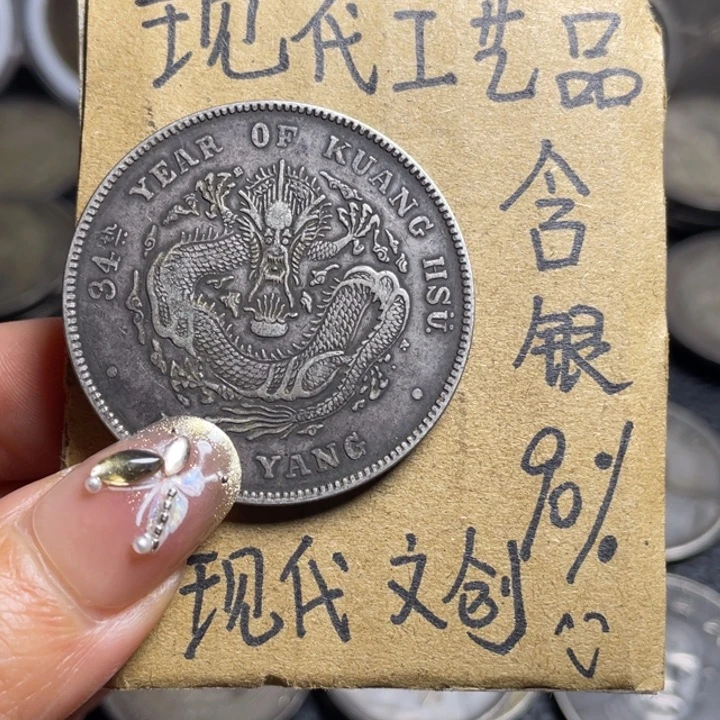 现代工艺品
含银90%
现代文创
34TH YEAR OF KUANG HSÜ
YANG